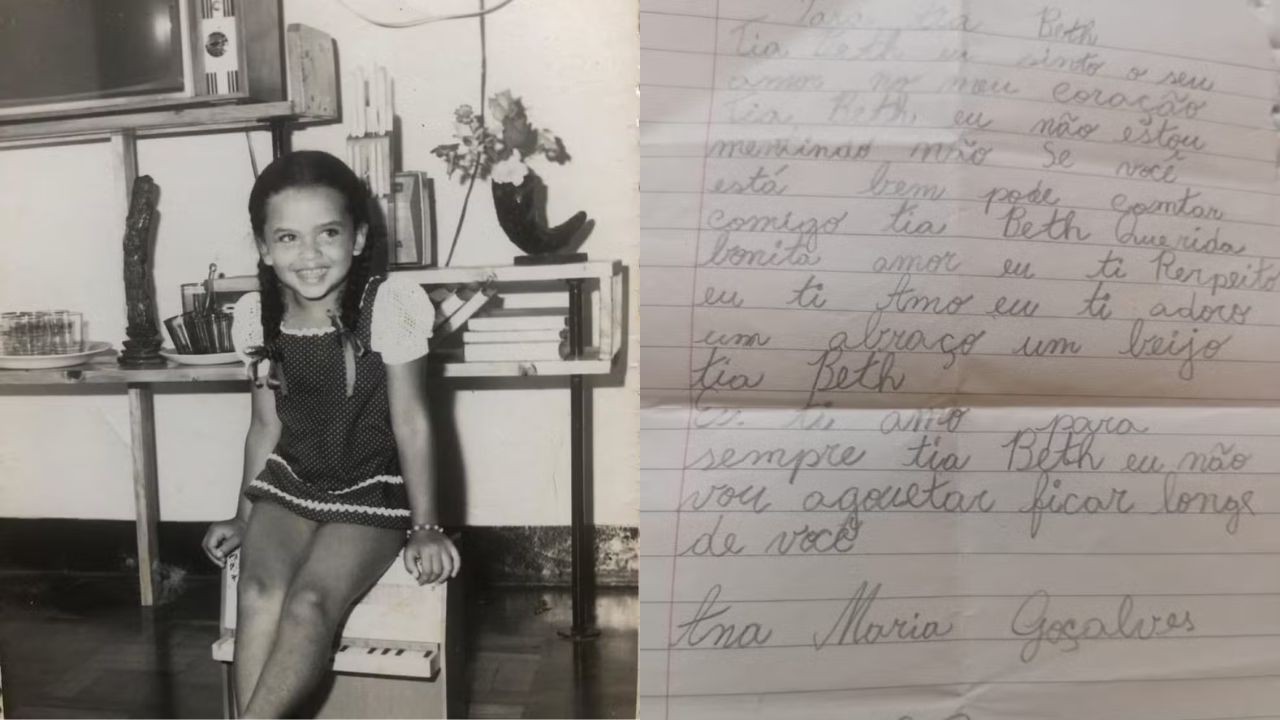 Para tia Beth
Tia Beth eu sinto o seu
amor no meu coração
Tia Beth, eu não estou
mentindo não Se você
está bem pode comtar
comigo tia Beth Querida
bonita amor eu ti Rerpeito
eu ti Amo eu ti adoro
um abraço um beijo
tia Beth
ti amo para
sempre tia Beth eu não
vou agouetar ficar longe
de você
Ana Maria Goçalves